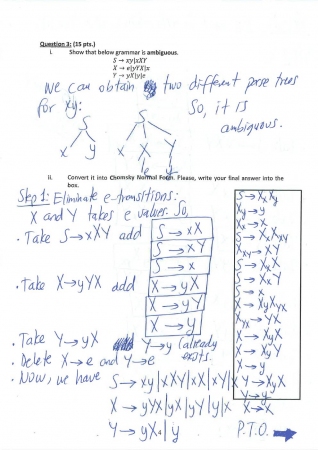 Question 3: (15 pts.)
i. Show that below grammar is ambiguous.
S → xy|xXY
X → e|yYX|x
Y → yX|y|e
We can obtain two different parse trees
for xy:
So, it is
ambiguous.
S
x y
S
x X Y
e y
ii. Convert it into Chomsky Normal Form. Please, write your final answer into the
box.
Step 1: Eliminate e-transitions:
X and Y takes e values. So,
• Take S→xXY add
S → xX
S → xY
S → x
• Take X→yYX add
X → yX
X → yY
X → y
• Take Y→yX add Y→y (already
exists.
• Delete X→e and Y→e
• Now, we have S→ xy|xXY|xX|xY|x
X → yYX|yX|yY|y|x
Y → yX|y
P.T.O.
S→XxXy
Xy→y
Xx→x
S→XxXXY
XXY→XY
S→XxX
S→XxY
S→x
X→XyXYX
XYX→YX
X→XyX
X→XyY
X→y
Y→XyX
Y→y
X→x